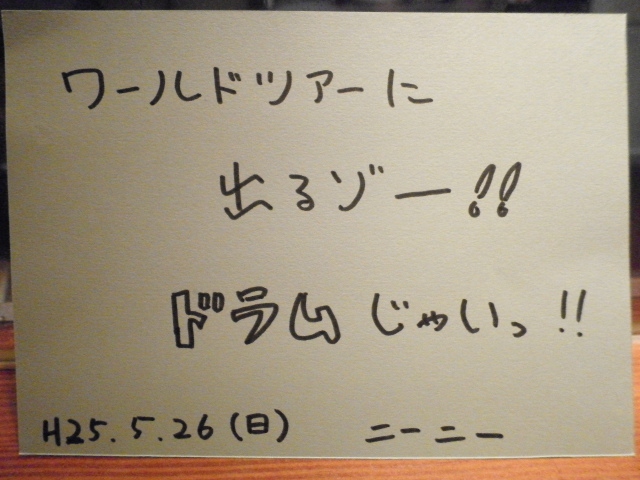 ワールドツアーに
出るゾー!!
ドラムじゃいっ!!
H25.5.26(日) ニーニー